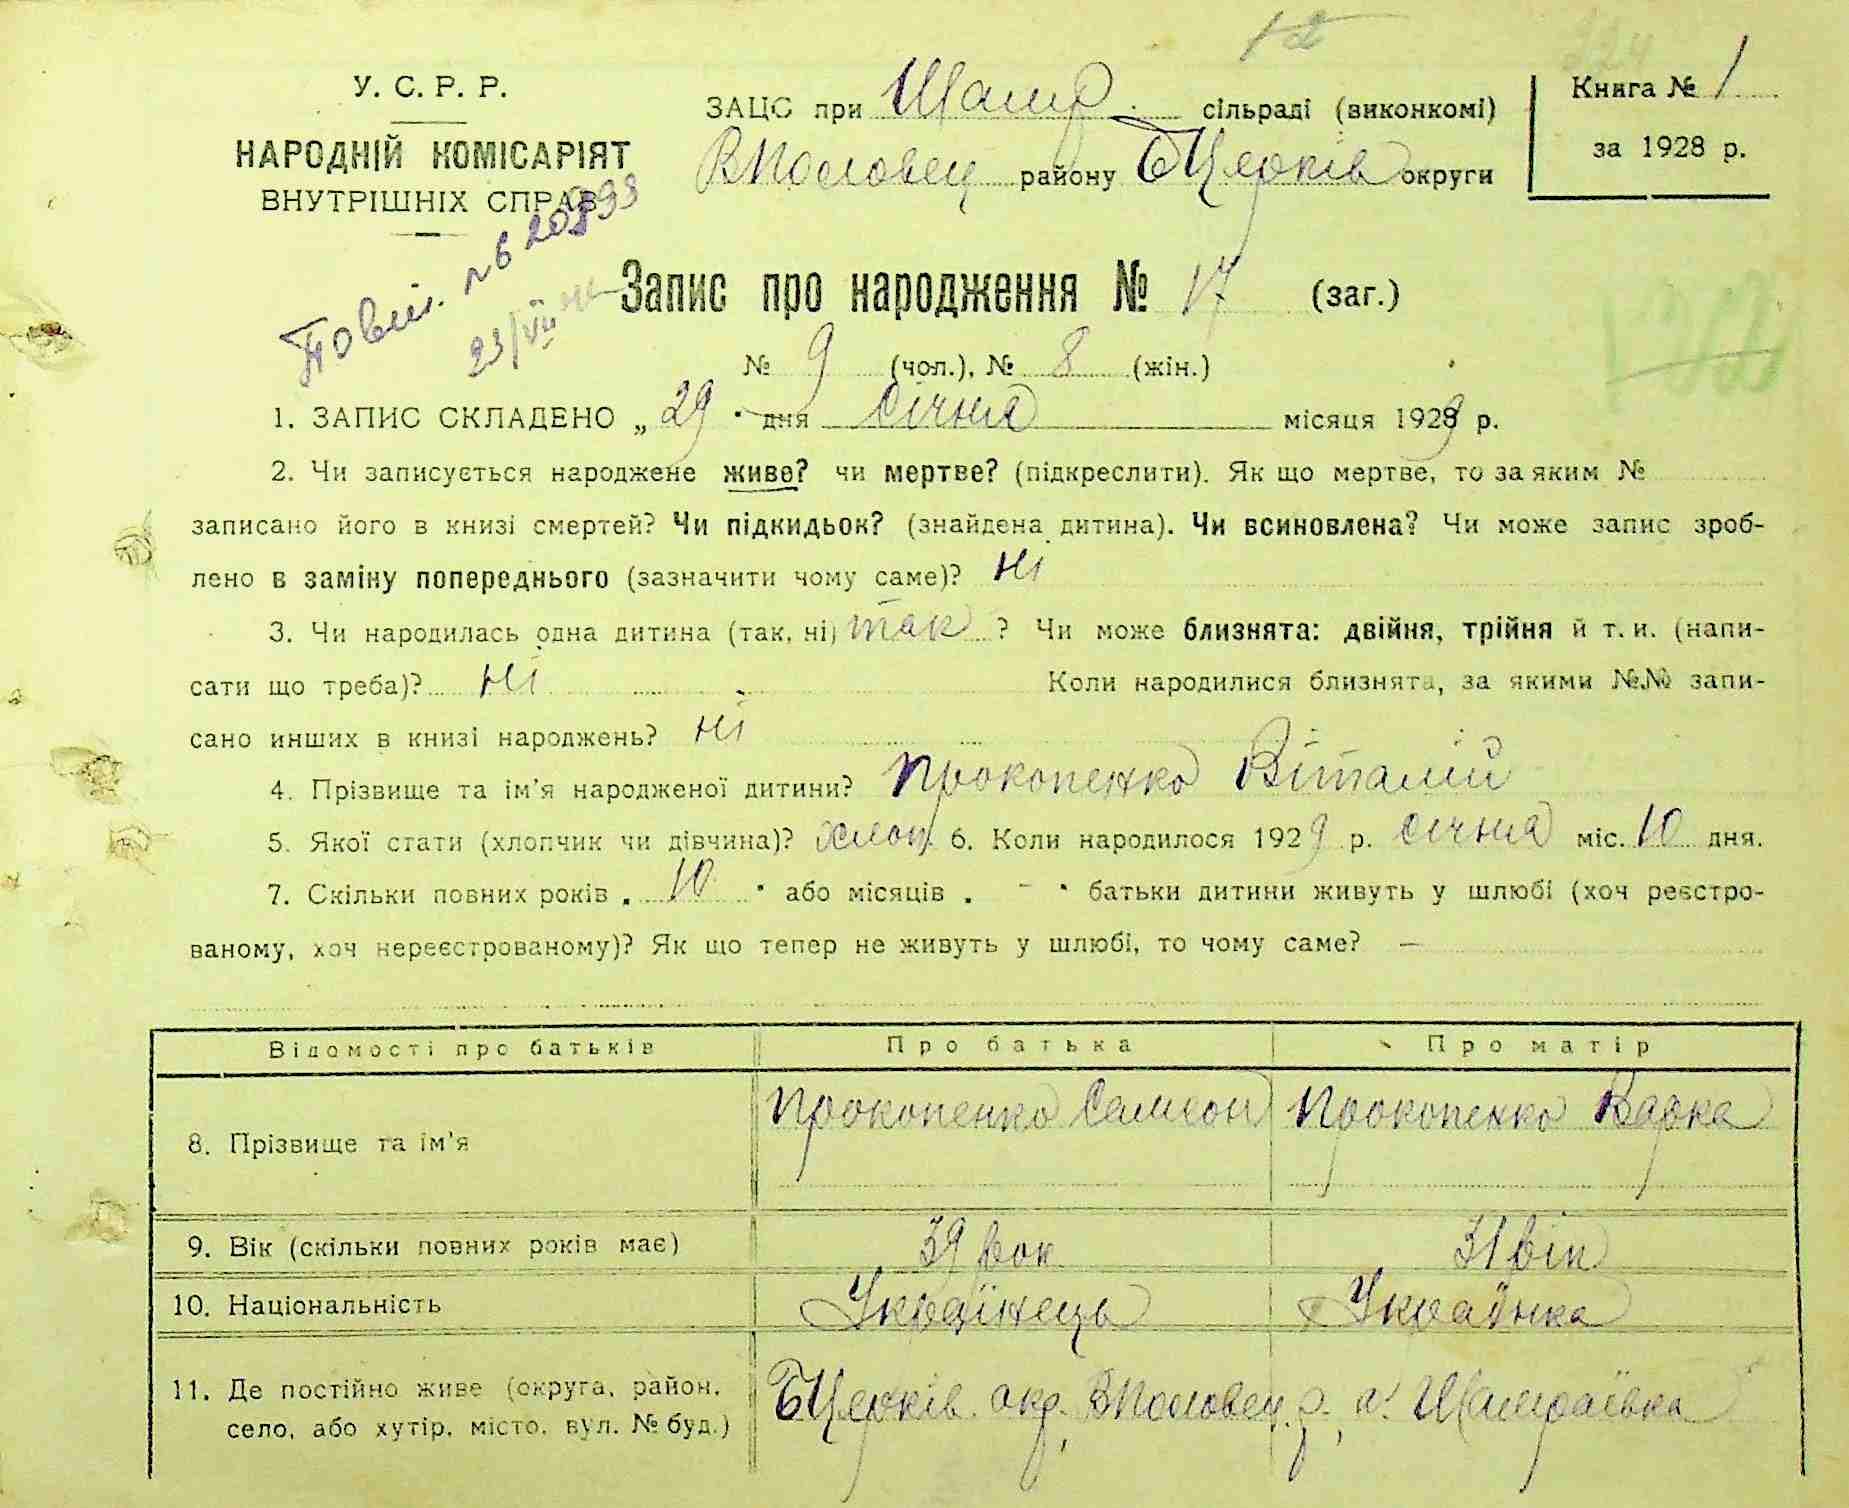 У. С. Р. Р.
НАРОДНІЙ КОМІСАРІЯТ
ВНУТРІШНІХ СПРАВ
ЗАЦС при Шамр. сільраді (виконкомі)
ВПоловец району БЦерків округи
Книга № 1
за 1928 р.
Повід. 208993
23/VII
Запис про народження № 17 (заг.)
№ 9 (чол.), № 8 (жін.)
1. ЗАПИС СКЛАДЕНО „ 29 " дня січня місяця 1929 р.
2. Чи записується народжене живе? чи мертве? (підкреслити). Як що мертве, то за яким №
записано його в книзі смертей? Чи підкидьок? (знайдена дитина). Чи всиновлена? Чи може запис зроб-
лено в заміну попереднього (зазначити чому саме)? ні
3. Чи народилась одна дитина (так, ні) так ? Чи може близнята: двійня, трійня й т. и. (напи-
сати що треба)? ні Коли народилися близнята, за якими №№ запи-
сано инших в книзі народжень? ні
4. Прізвище та ім'я народженої дитини? Прокопенко Віталій
5. Якої стати (хлопчик чи дівчина)? хлоп. 6. Коли народилося 1929 р. січня міс. 10 дня.
7. Скільки повних років „ 10 " або місяців „ - " батьки дитини живуть у шлюбі (хоч реєстро-
ваному, хоч нереєстрованому)? Як що тепер не живуть у шлюбі, то чому саме? —
Відомості про батьків Про батька Про матір
8. Прізвище та ім'я Прокопенко Самсон Прокопенко Варка
9. Вік (скільки повних років має) 39 рок 31 вік
10. Національність Українець Українка
11. Де постійно живе (округа, район, БЦерків. окр. ВПоловец. р. с. Шамраївка
село, або хутір, місто, вул. № буд.)